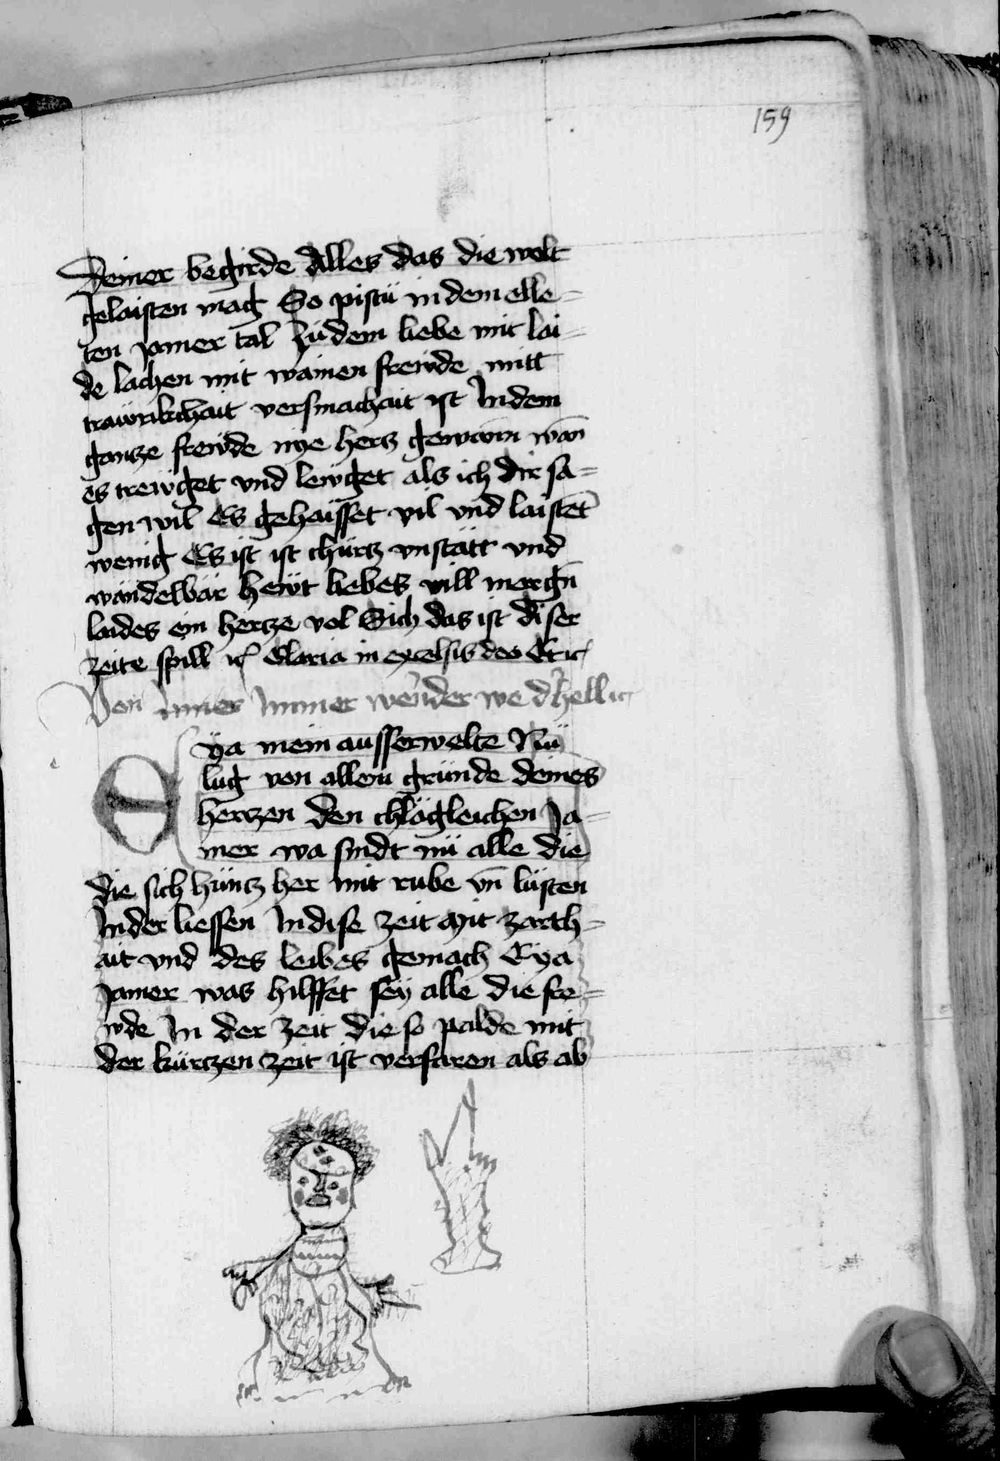 159
Deiner begirde Alles das die welt
gelaisten mag So pistu in dem elle=
ten jamer tal zu dem liebe mit lai=
de lachen mit wainen frewde mitt
trawrikchait versmachait ist In dem
gantze frewde nye hertz gewan wan
es trewget vnd lewget als ich dir sa=
gen wil Es gehaisset vil vnd laistet
wenig Es ist ist churtz vnstätt vnd
wandelbär hewt liebes vill morgn
laides ein hertze vol Sich das ist diser
zeite spill Gloria in excelsis deo
Von Immer we der hellin
Eya mein ausserwelte Nu
lug von allem grunde deines
hertzen den chlägleichen Ja=
mer wa sindt nu alle die
die sich huntz her mit rube vn lüsten
Nider liessen In dise zeit mit zarth=
ait vnd des leibes gemach Eya
Jamer was hilffet sey alle die fre=
wde In der zeit die so palde mit
der kürtzen zeit ist verfaren als ab